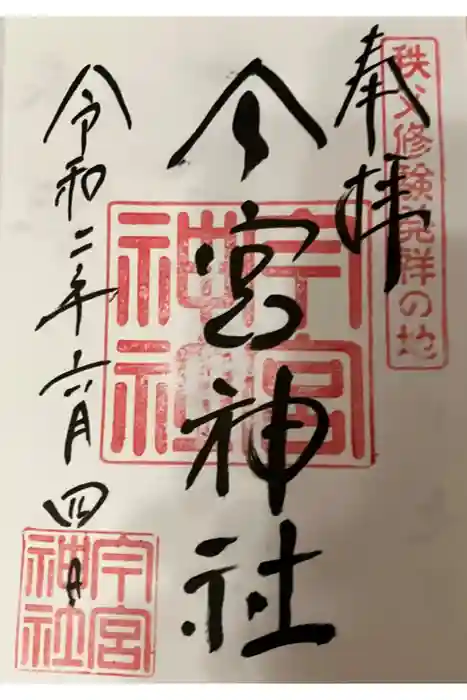 秩父修験発祥の地
奉拝
今宮神社
今宮神社
令和二年六月四日
今宮神社